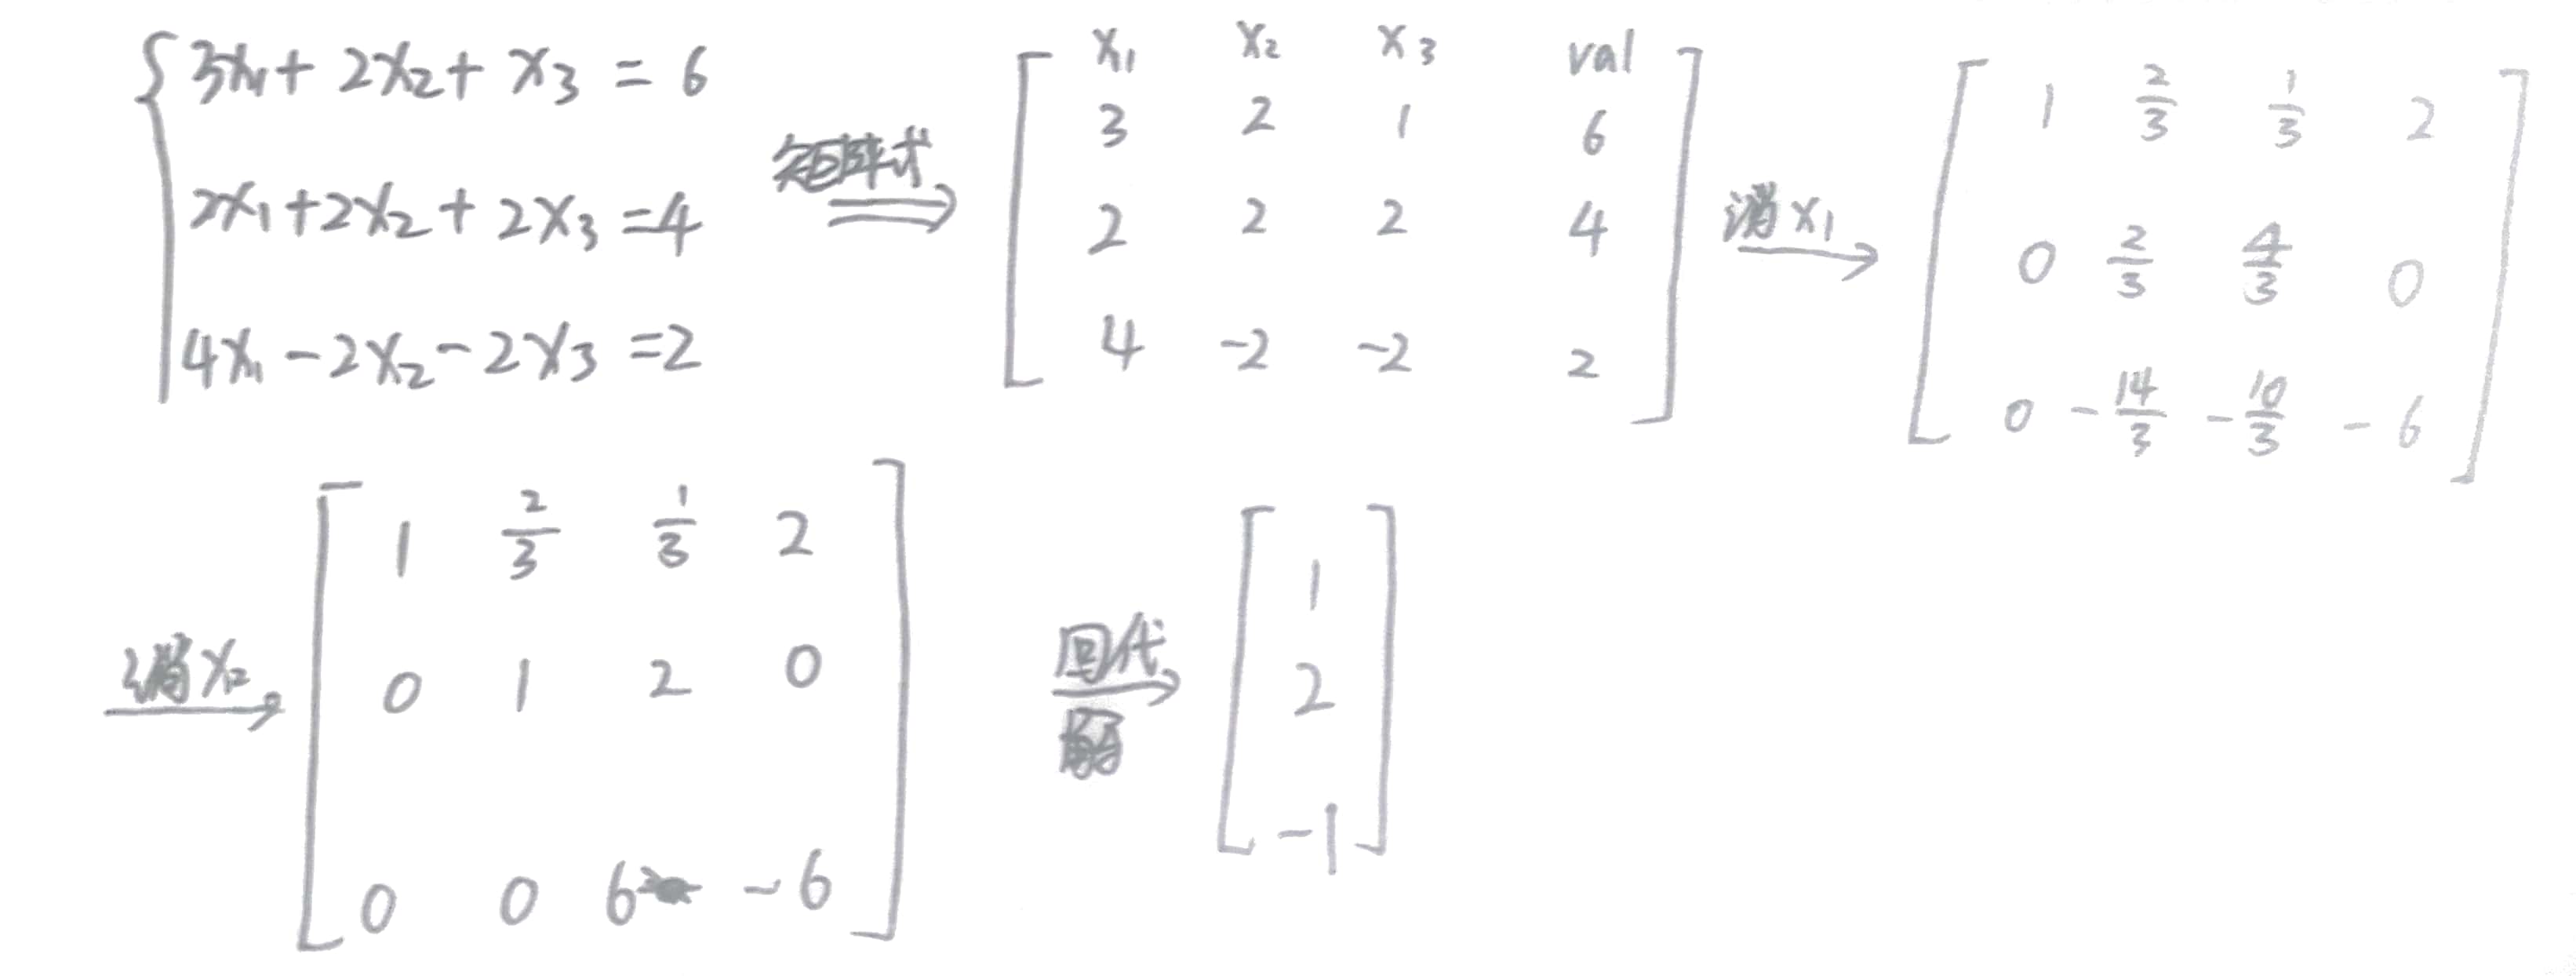 3x₁ + 2x₂ + x₃ = 6
2x₁ + 2x₂ + 2x₃ = 4
4x₁ - 2x₂ - 2x₃ = 2
矩阵式
x₁ x₂ x₃ val
3 2 1 6
2 2 2 4
4 -2 -2 2
消x₁
1 2/3 1/3 2
0 2/3 4/3 0
0 -14/3 -10/3 -6
消x₂
1 2/3 1/3 2
0 1 2 0
0 0 6 -6
回代
解
1
2
-1